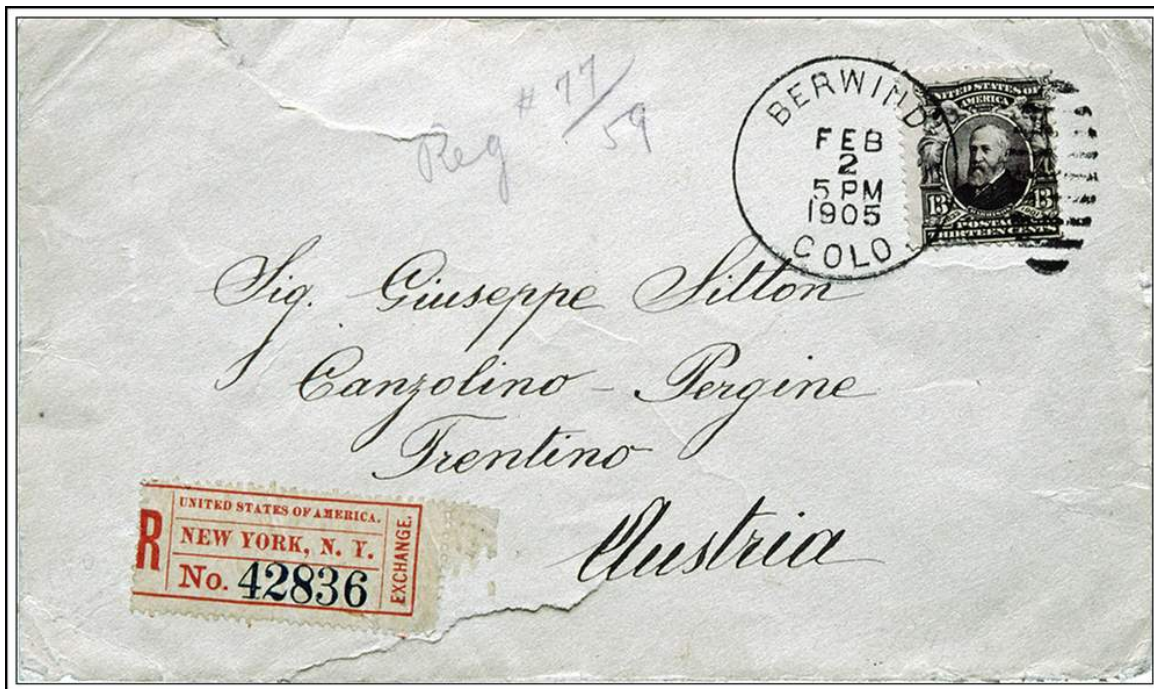 Reg # 77/59
BERWIND
FEB
2
5 PM
1905
COLO.
UNITED STATES OF
AMERICA
13 13
POSTAGE
THIRTEEN CENTS
Sig. Giuseppe Sitton
Canzolino - Pergine
Trentino
Austria
R
UNITED STATES OF AMERICA.
NEW YORK, N. Y.
No. 42836
EXCHANGE.